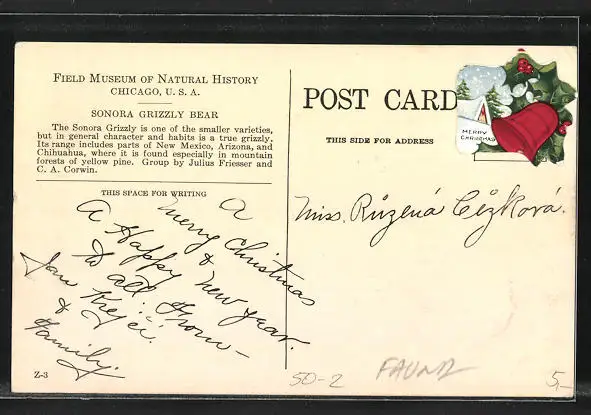 FIELD MUSEUM OF NATURAL HISTORY
CHICAGO, U. S. A.
SONORA GRIZZLY BEAR
The Sonora Grizzly is one of the smaller varieties,
but in general character and habits is a true grizzly.
Its range includes parts of New Mexico, Arizona, and
Chihuahua, where it is found especially in mountain
forests of yellow pine. Group by Julius Friesser and
C. A. Corwin.
THIS SPACE FOR WRITING
A
Merry Christmas
&
A Happy New Year.
to all: From—
Jan Krejčí.
& 
Family.
Z-3
POST CARD
THIS SIDE FOR ADDRESS
MERRY
CHRISTMAS
Miss. Růžená Čížková.
50-2
FAUNA
5,-